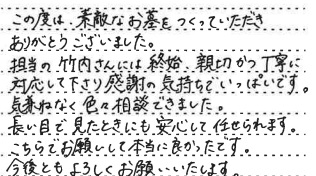 この度は、素敵なお墓をつくっていただき
ありがとうございました。
担当の竹内さんには終始、親切かつ丁寧に
対応して下さり感謝の気持ちでいっぱいです。
気兼ねなく色々相談できました。
長い目で見たときにも安心して任せられます。
こちらでお願いして本当に良かったです。
今後ともよろしくお願いいたします。